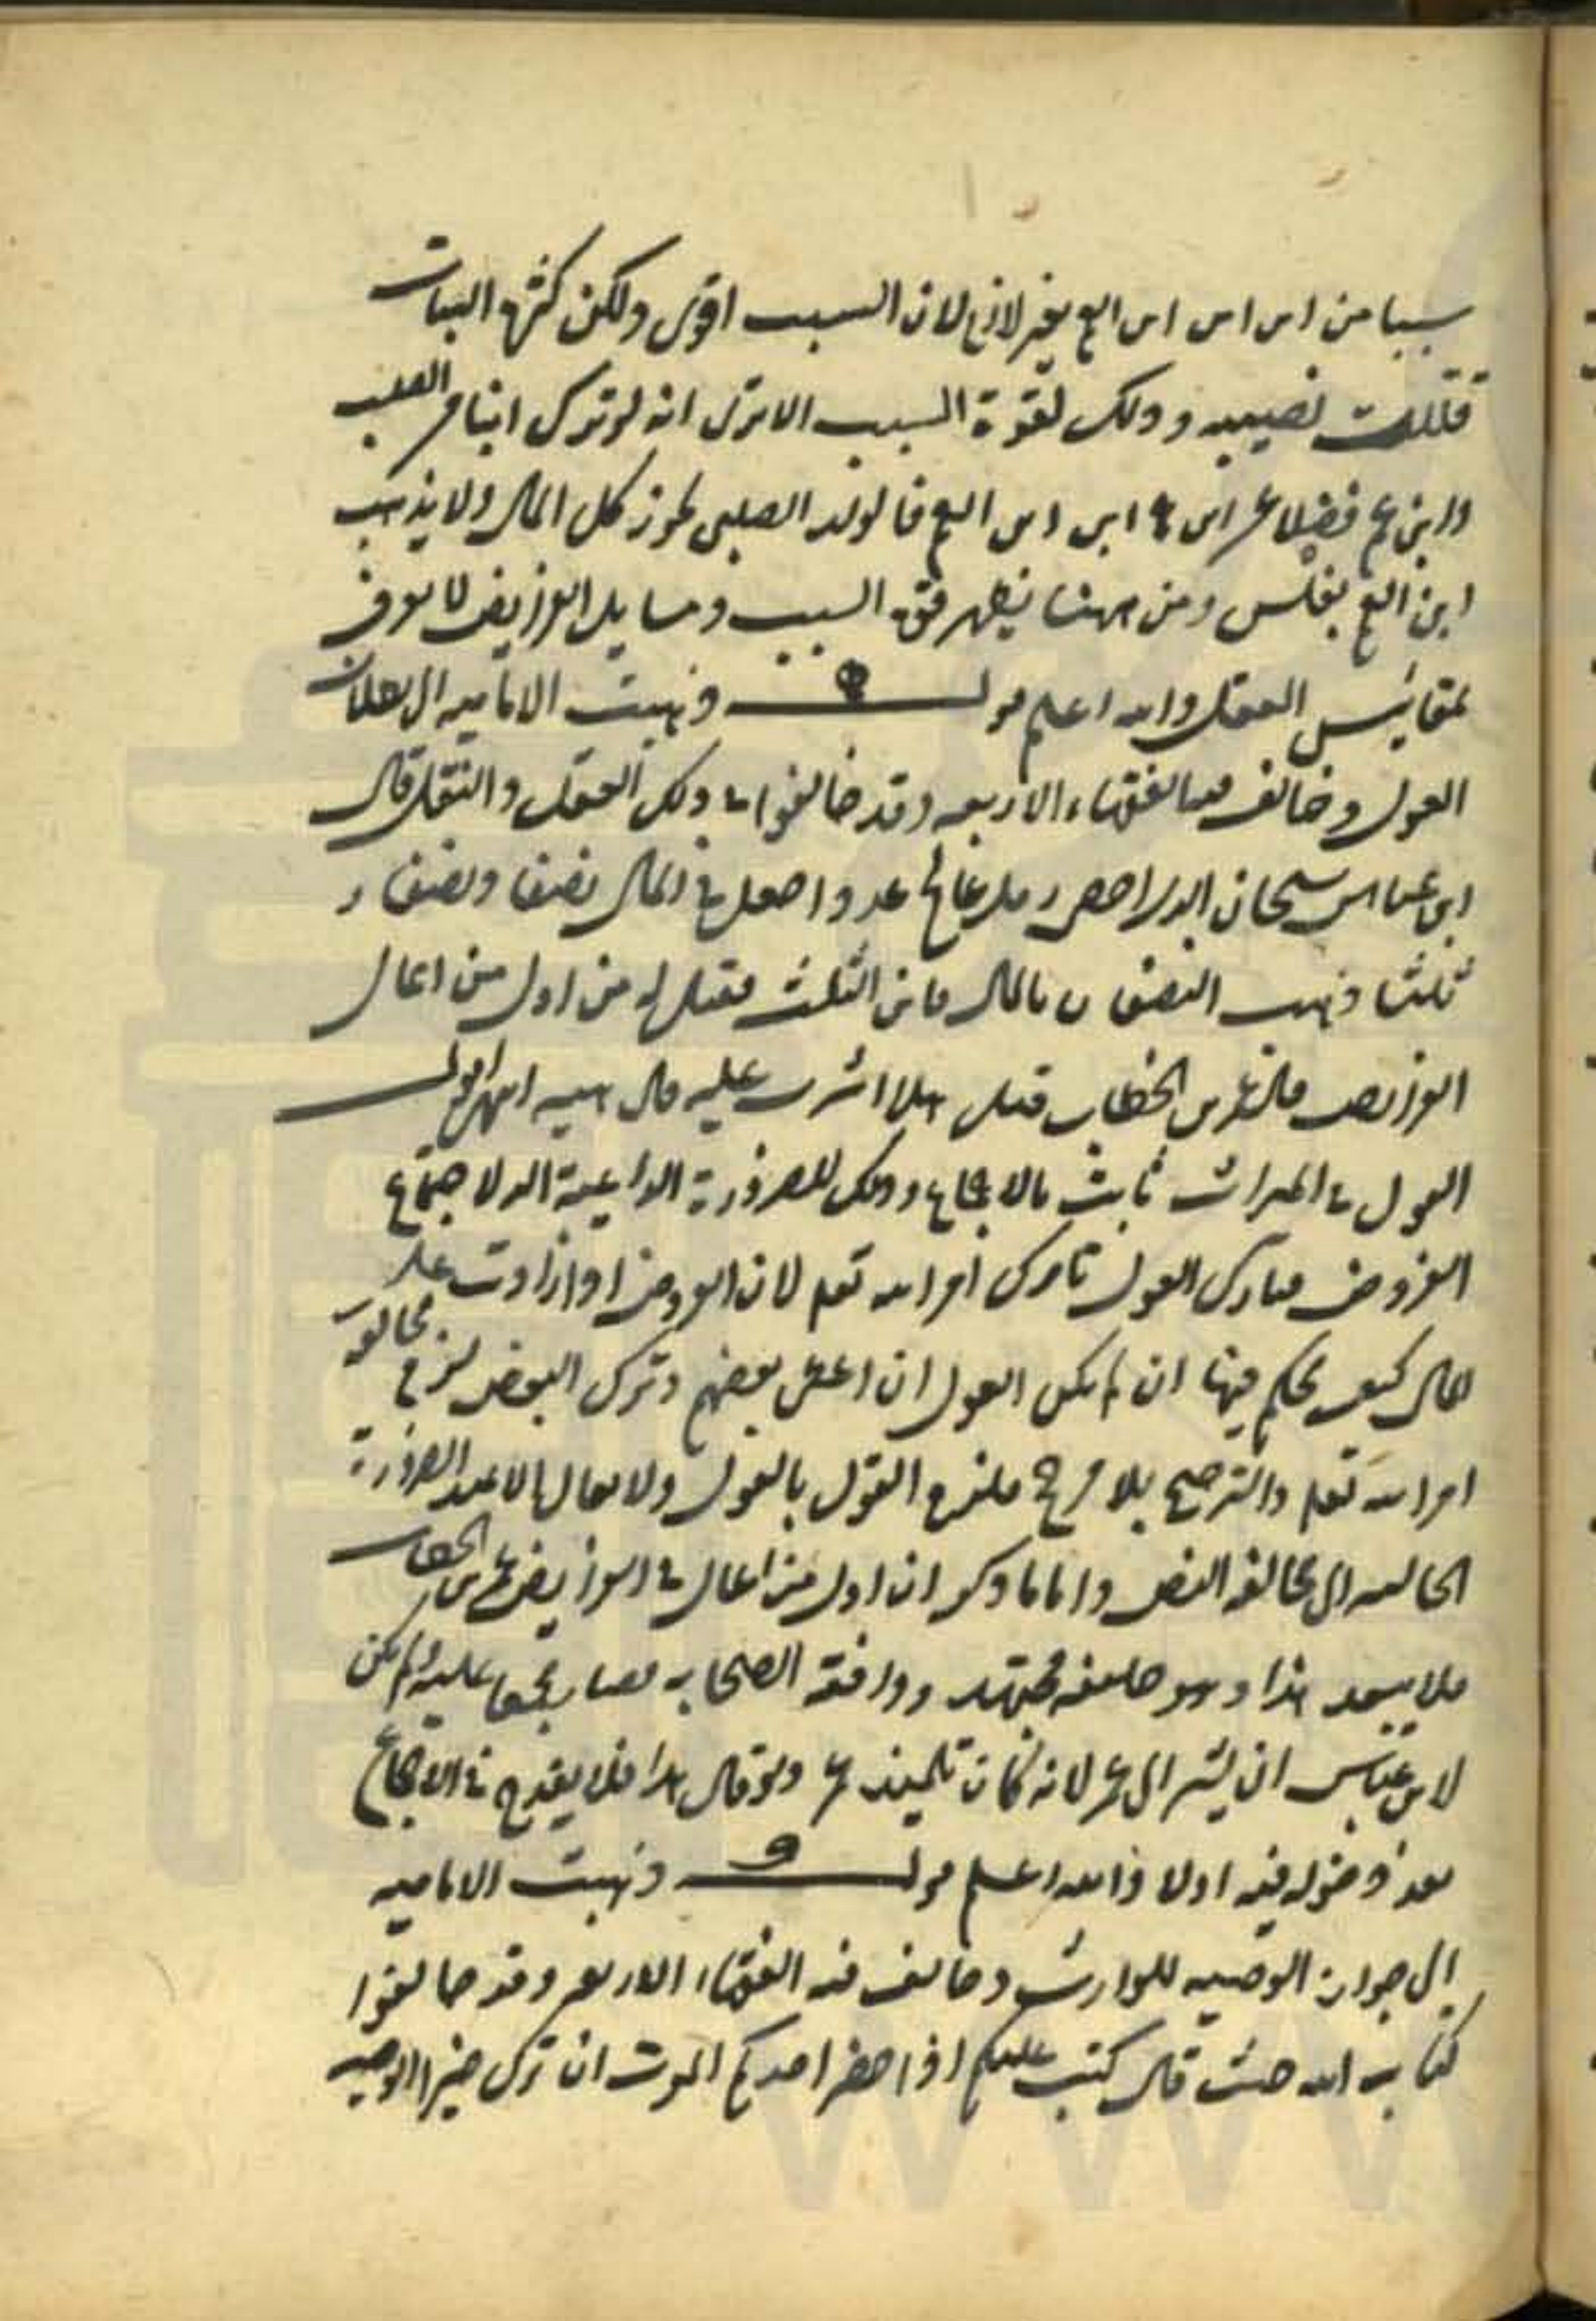 سببا من ابن ابن ابن العم بغير لازم لان السبب اقوى ولكن كثرة البنات
قللت نصيبه وذلك لقوة السبب الا ترى انه لو ترك ابنا من الصلب
وابن عم فضلا عن ابن ابن ابن العم فالولد الصلبى يحوز كل المال ولا يذهب
ابن العم بفلس ومن ههنا يظهر قوة السبب ومسايل الفرايض لا تعرف
بمقاييس العقل والله اعلم قولـه ذهبت الامامية الى بطلان
العول وخالف فيه الفقهاء الاربعه وقد خالفوا فى ذلك العقل والنقل قال
ابن عباس سبحان الذى احصى رمل عالج عددا جعل فى المال نصفا ونصفا و
ثلثا ذهب النصفان بالمال فاين الثلث فقيل له من اول من اعال
الفرايض قال عمر بن الخطاب قيل هلا اشرت عليه قال هبته اقول
العول فى الميراث ثابت بالاجماع وذلك للضرورة الداعية اليه لاجتماع
الفروض فتارك العول تارك امر الله تعلم لان الفروض اذا زادت على
المال كيف يحكم فيها ان لم يكن العول ان اعطى بعضهم وترك البعض لزم مخالفة
امر الله تعلم والترجيح بلا مرجح فلزم القول بالعول ولا يعال الا عند الضرورة
الجالبه الى مخالفة النص واما ما ذكر ان اول من اعال فى الفرايض عمر بن الخطاب
فلا يبعد هذا وهو خليفه مجتهد ووافقه الصحابه فصار مجمعا عليه ولم يكن
لابن عباس ان يشير الى عمر لانه كان تلميذ عمر ولو قال هذا فلا يقدح فى الاجماع
بعد دخوله فيه اولا والله اعلم قولـه ذهبت الاماميه
الى جواز الوصيه للوارث وخالف فيه الفقهاء الاربعه وقد خالفوا
كتاب الله حيث قال كتب عليكم اذا حضر احدكم الموت ان ترك خيرا الوصيه